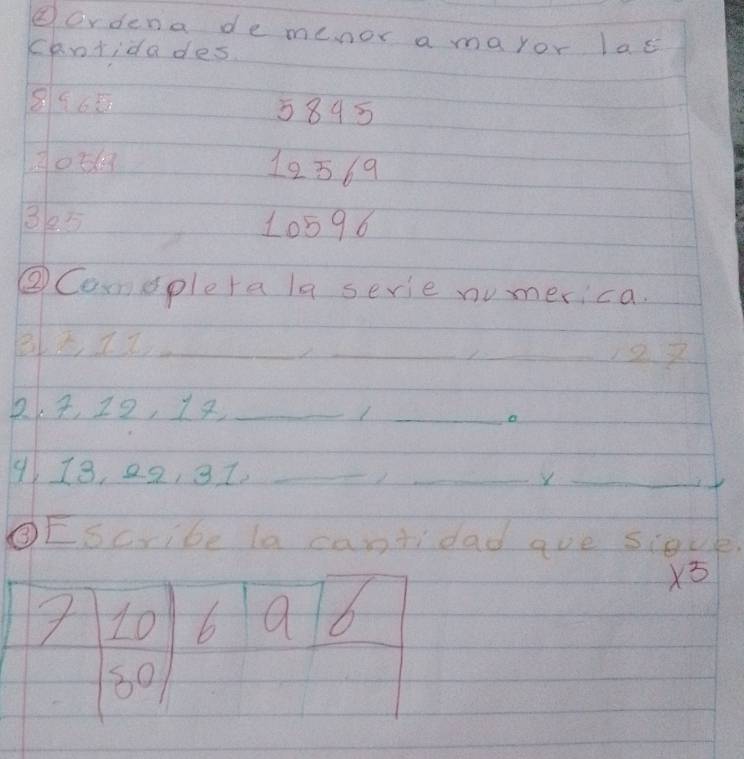 ① Ordena de menor a mayor las
cantidades.
8965 5895
12569
305 10596
② Comopleta la serie numerica.
3, 7, 11, ____, ____, ____, 27
2, 7, 12, 17, ____, ____.
4, 13, 22, 31, ____, ____ y ____
③ Escribe la cantidad que sigue.
x5
7 10 6 9 6
50